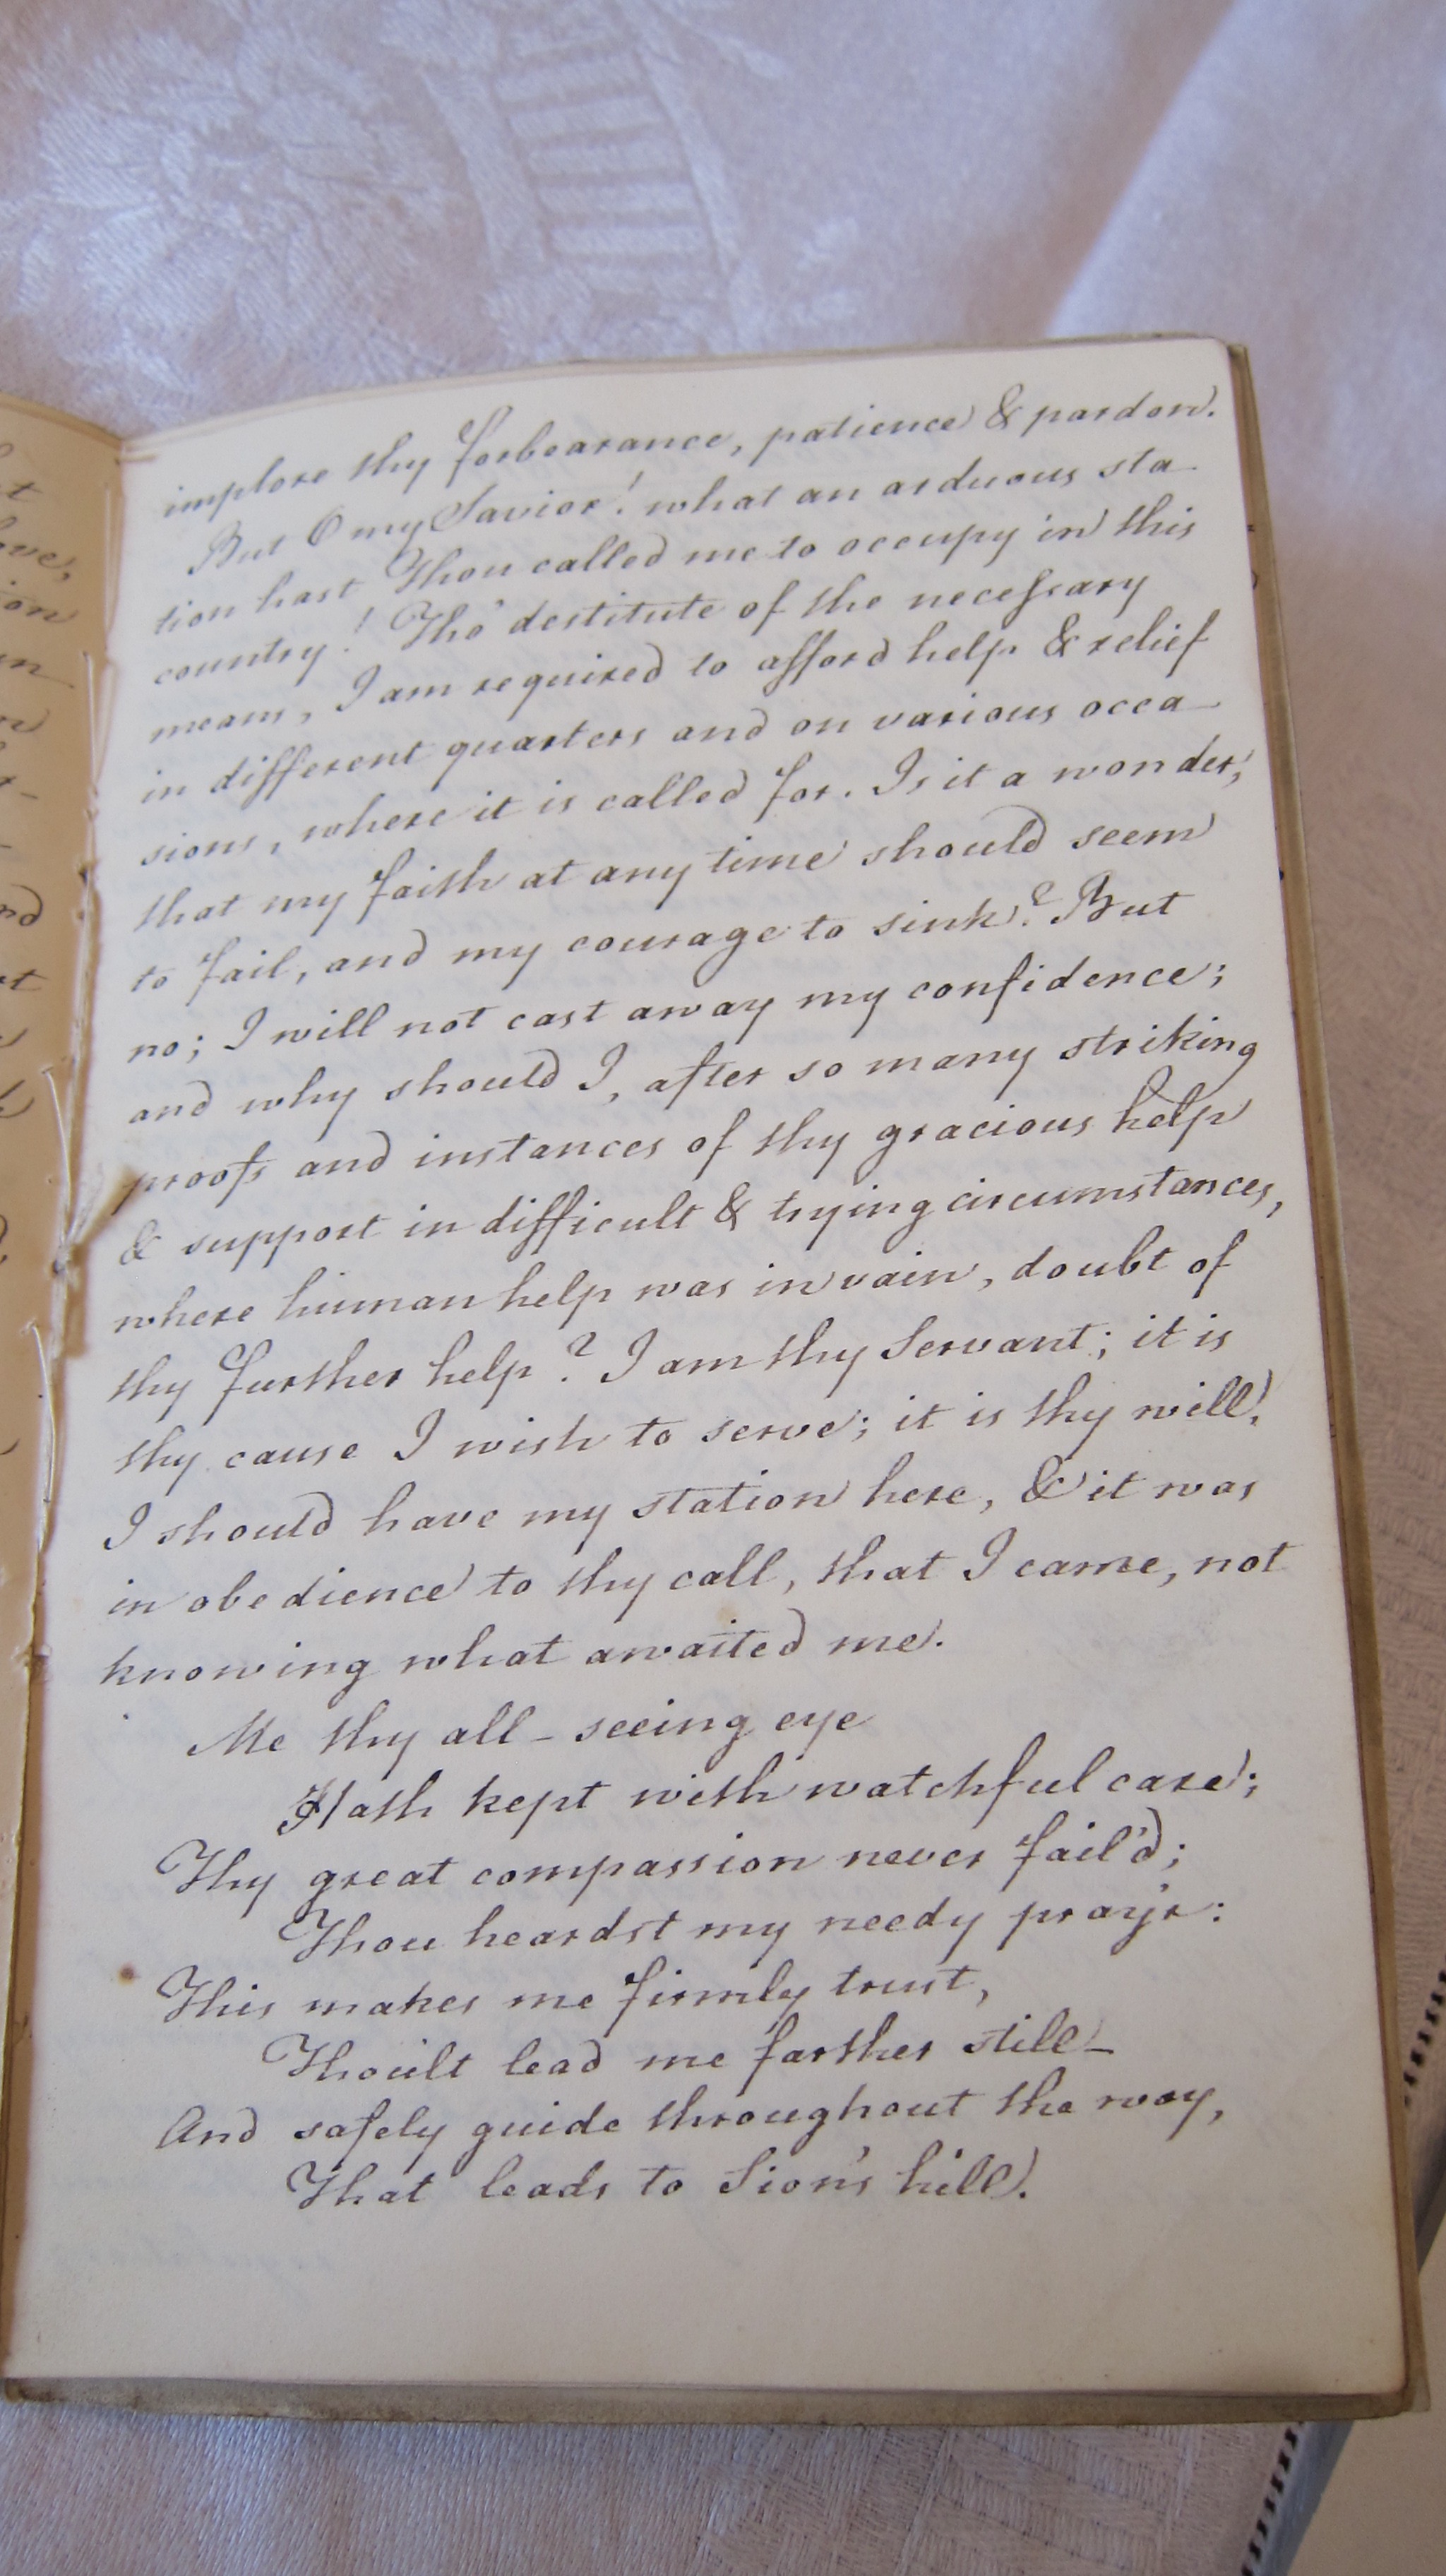 implore thy forbearance, patience & pardon.
But O my Savior! what an arduous sta-
tion hast Thou called me to occupy in this
country! Tho' destitute of the necessary
means, I am required to afford help & relief
in different quarters and on various occa-
sions, where it is called for. Is it a wonder,
that my faith at any time should seem
to fail, and my courage to sink? But
no; I will not cast away my confidence;
and why should I, after so many striking
proofs and instances of thy gracious help
& support in difficult & trying circumstances,
where human help was in vain, doubt of
thy further help? I am thy Servant; it is
thy cause I wish to serve; it is thy will,
I should have my station here, & it was
in obedience to thy call, that I came, not
knowing what awaited me.
Me thy all-seeing eye
Hath kept with watchful care;
Thy great compassion never fail'd;
Thou heardst my needy pray'r:
This makes me firmly trust,
Thou'lt lead me farther still-
And safely guide throughout the way,
That leads to Sion's hill.